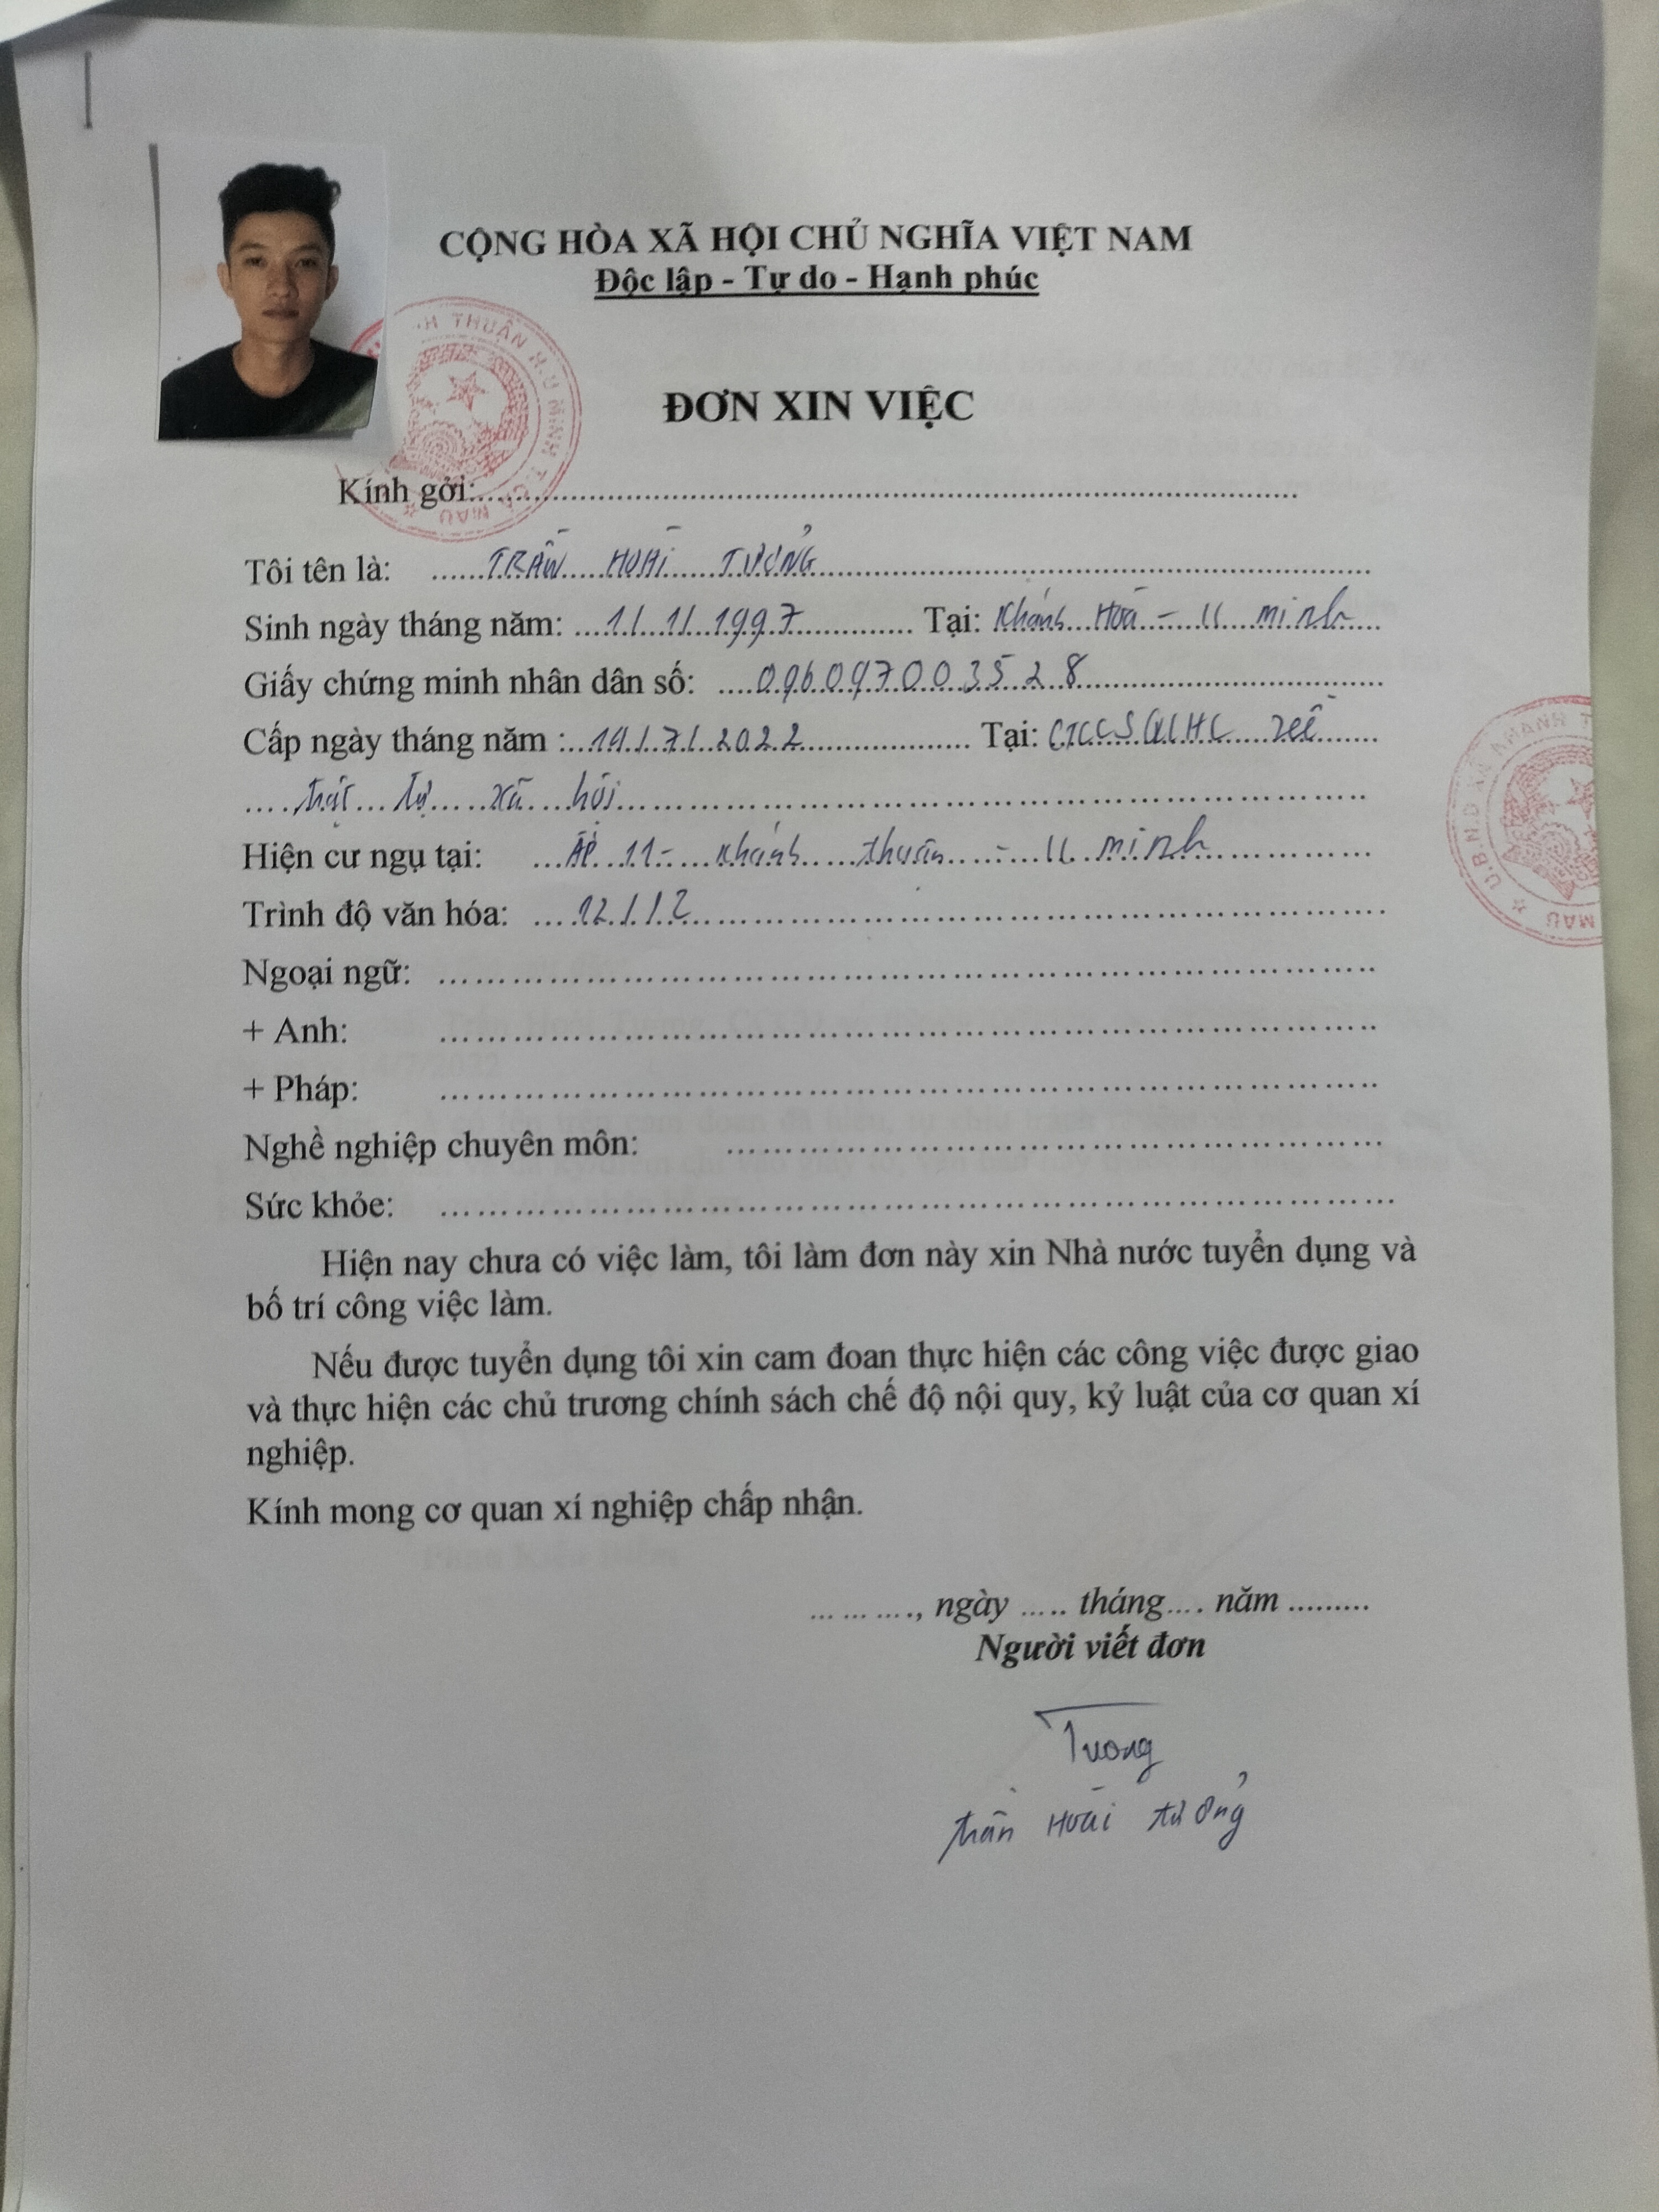 CỘNG HÒA XÃ HỘI CHỦ NGHĨA VIỆT NAM
Độc lập - Tự do - Hạnh phúc
H THUẬN H.U MINH T.CÀ MAU
ĐƠN XIN VIỆC
Kính gởi:
Tôi tên là: TRẦN HOÀI TƯỞNG
Sinh ngày tháng năm: 1/1/1997 Tại: Khánh Hoà - U minh
Giấy chứng minh nhân dân số: 096097003528
Cấp ngày tháng năm : 14/7/2022 Tại: CTCCSQLHC
trật tự xã hội
Hiện cư ngụ tại: ẤP 11 - Khánh thuận - U minh
Trình độ văn hóa: 12/12
U.B.N.D XÃ KHÁNH T MAU
Ngoại ngữ:
+ Anh:
+ Pháp:
Nghề nghiệp chuyên môn:
Sức khỏe:
Hiện nay chưa có việc làm, tôi làm đơn này xin Nhà nước tuyển dụng và
bố trí công việc làm.
Nếu được tuyển dụng tôi xin cam đoan thực hiện các công việc được giao
và thực hiện các chủ trương chính sách chế độ nội quy, kỷ luật của cơ quan xí
nghiệp.
Kính mong cơ quan xí nghiệp chấp nhận.
, ngày ..... tháng.... năm .........
Người viết đơn
Tương
Trần Hoài tưởng